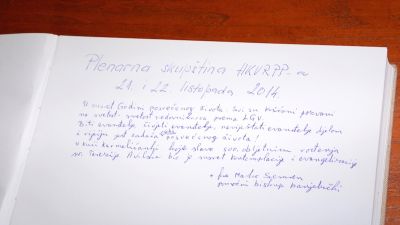 Plenarna skupština HKVRPP-a
21. i 22. listopada 2014.
U susret Godini posvećenog života: svi su kršćani pozvani
na svetost - svetost redovništva prema LGV.
Biti evanđelje, živjeti evanđelje, naviještati evanđelje djelom
i riječju jest zadaća posvećenog života!
U kući karmelićanki koje slave 500. obljetnicu rođenja
sv. Terezije Avilske bio je susret kontemplacije i evangelizacije
+ fra Mato
pomoćni biskup